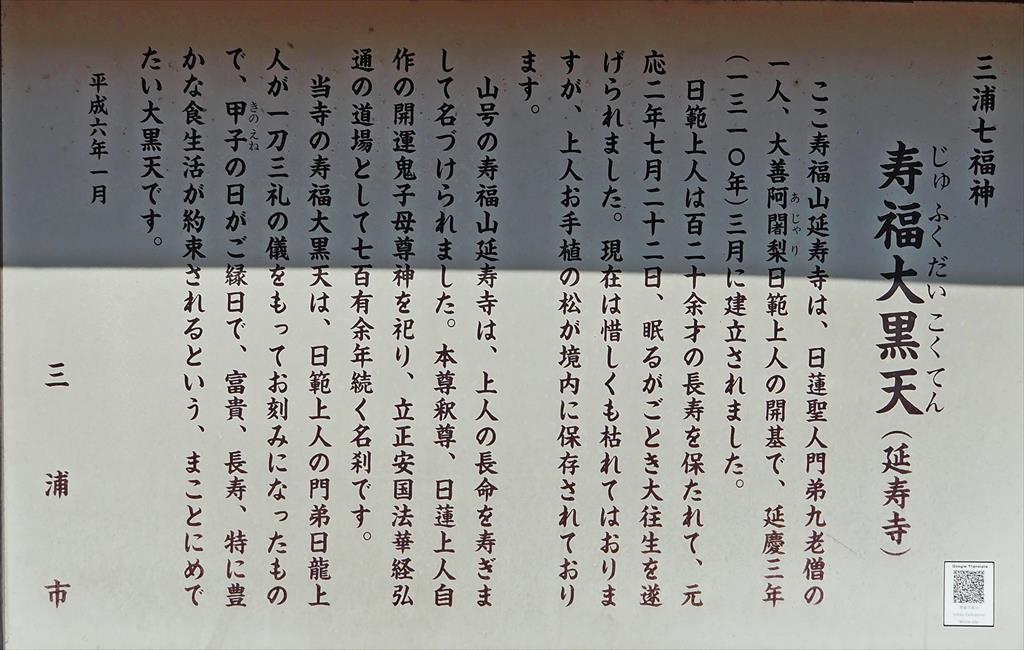 三浦七福神
じゅふくだいこくてん
寿福大黒天(延寿寺)
ここ寿福山延寿寺は、日蓮聖人門弟九老僧の
一人、大善阿闍梨日範上人の開基で、延慶三年
あじゃり
(一三一〇年)三月に建立されました。
日範上人は百二十余才の長寿を保たれて、元
応二年七月二十二日、眠るがごとき大往生を遂
げられました。現在は惜しくも枯れてはおりま
すが、上人お手植の松が境内に保存されており
ます。
山号の寿福山延寿寺は、上人の長命を寿ぎま
して名づけられました。本尊釈尊、日蓮上人自
作の開運鬼子母尊神を祀り、立正安国法華経弘
通の道場として七百有余年続く名刹です。
当寺の寿福大黒天は、日範上人の門弟日龍上
人が一刀三礼の儀をもってお刻みになったもの
で、甲子の日がご縁日で、富貴、長寿、特に豊
きのえね
かな食生活が約束されるという、まことにめで
たい大黒天です。
平成六年一月
三浦市
Google Translate